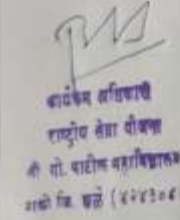 कार्यक्रम अधिकारी
राष्ट्रीय सेवा योजना
सी गो. पाटील महाविद्यालय
साक्री जि. धुळे (४२४३०४